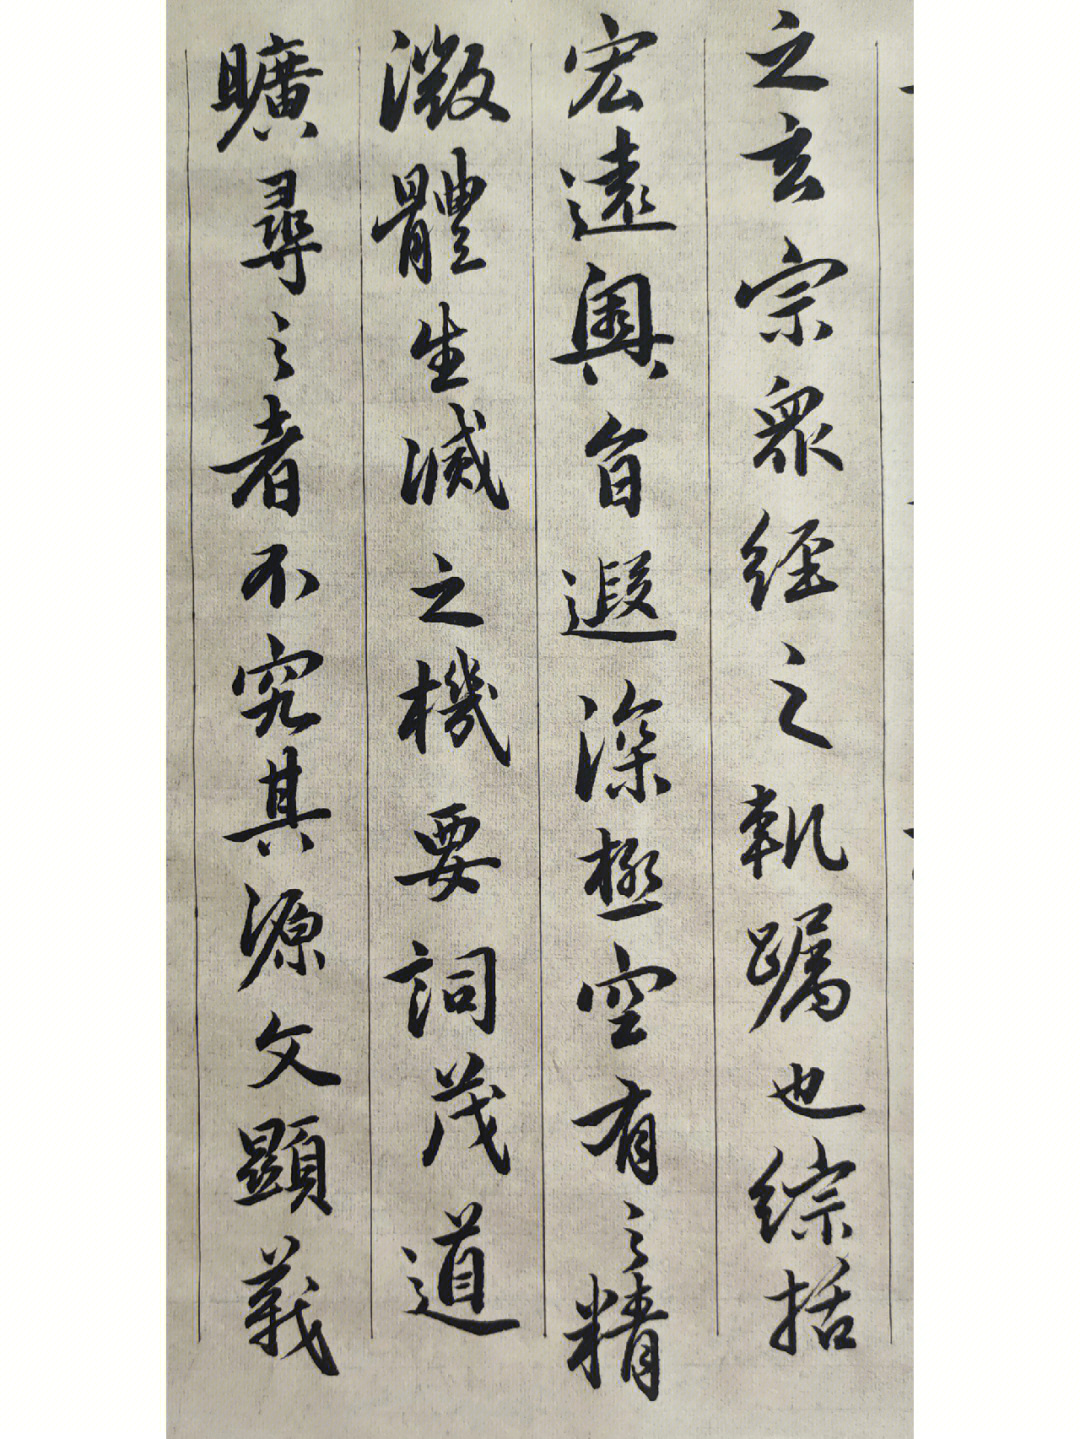 之玄宗衆經之軌躅也綜括
宏遠奧旨遐深極空有之精
微體生滅之機要詞茂道
曠尋之者不究其源文顯義